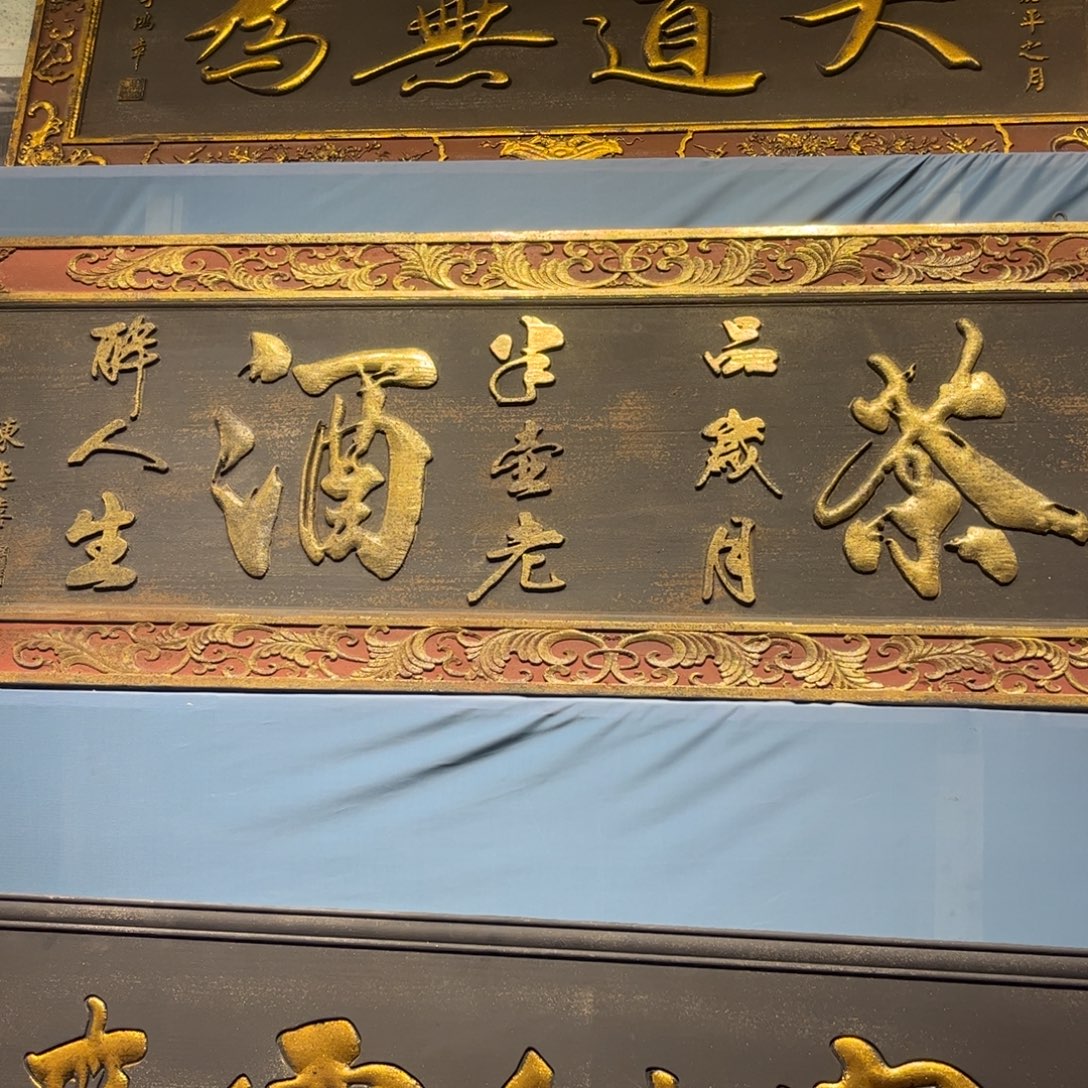 大道無為
平之月
鴻章
茶
品歲月
半壺老
酒
醉人生